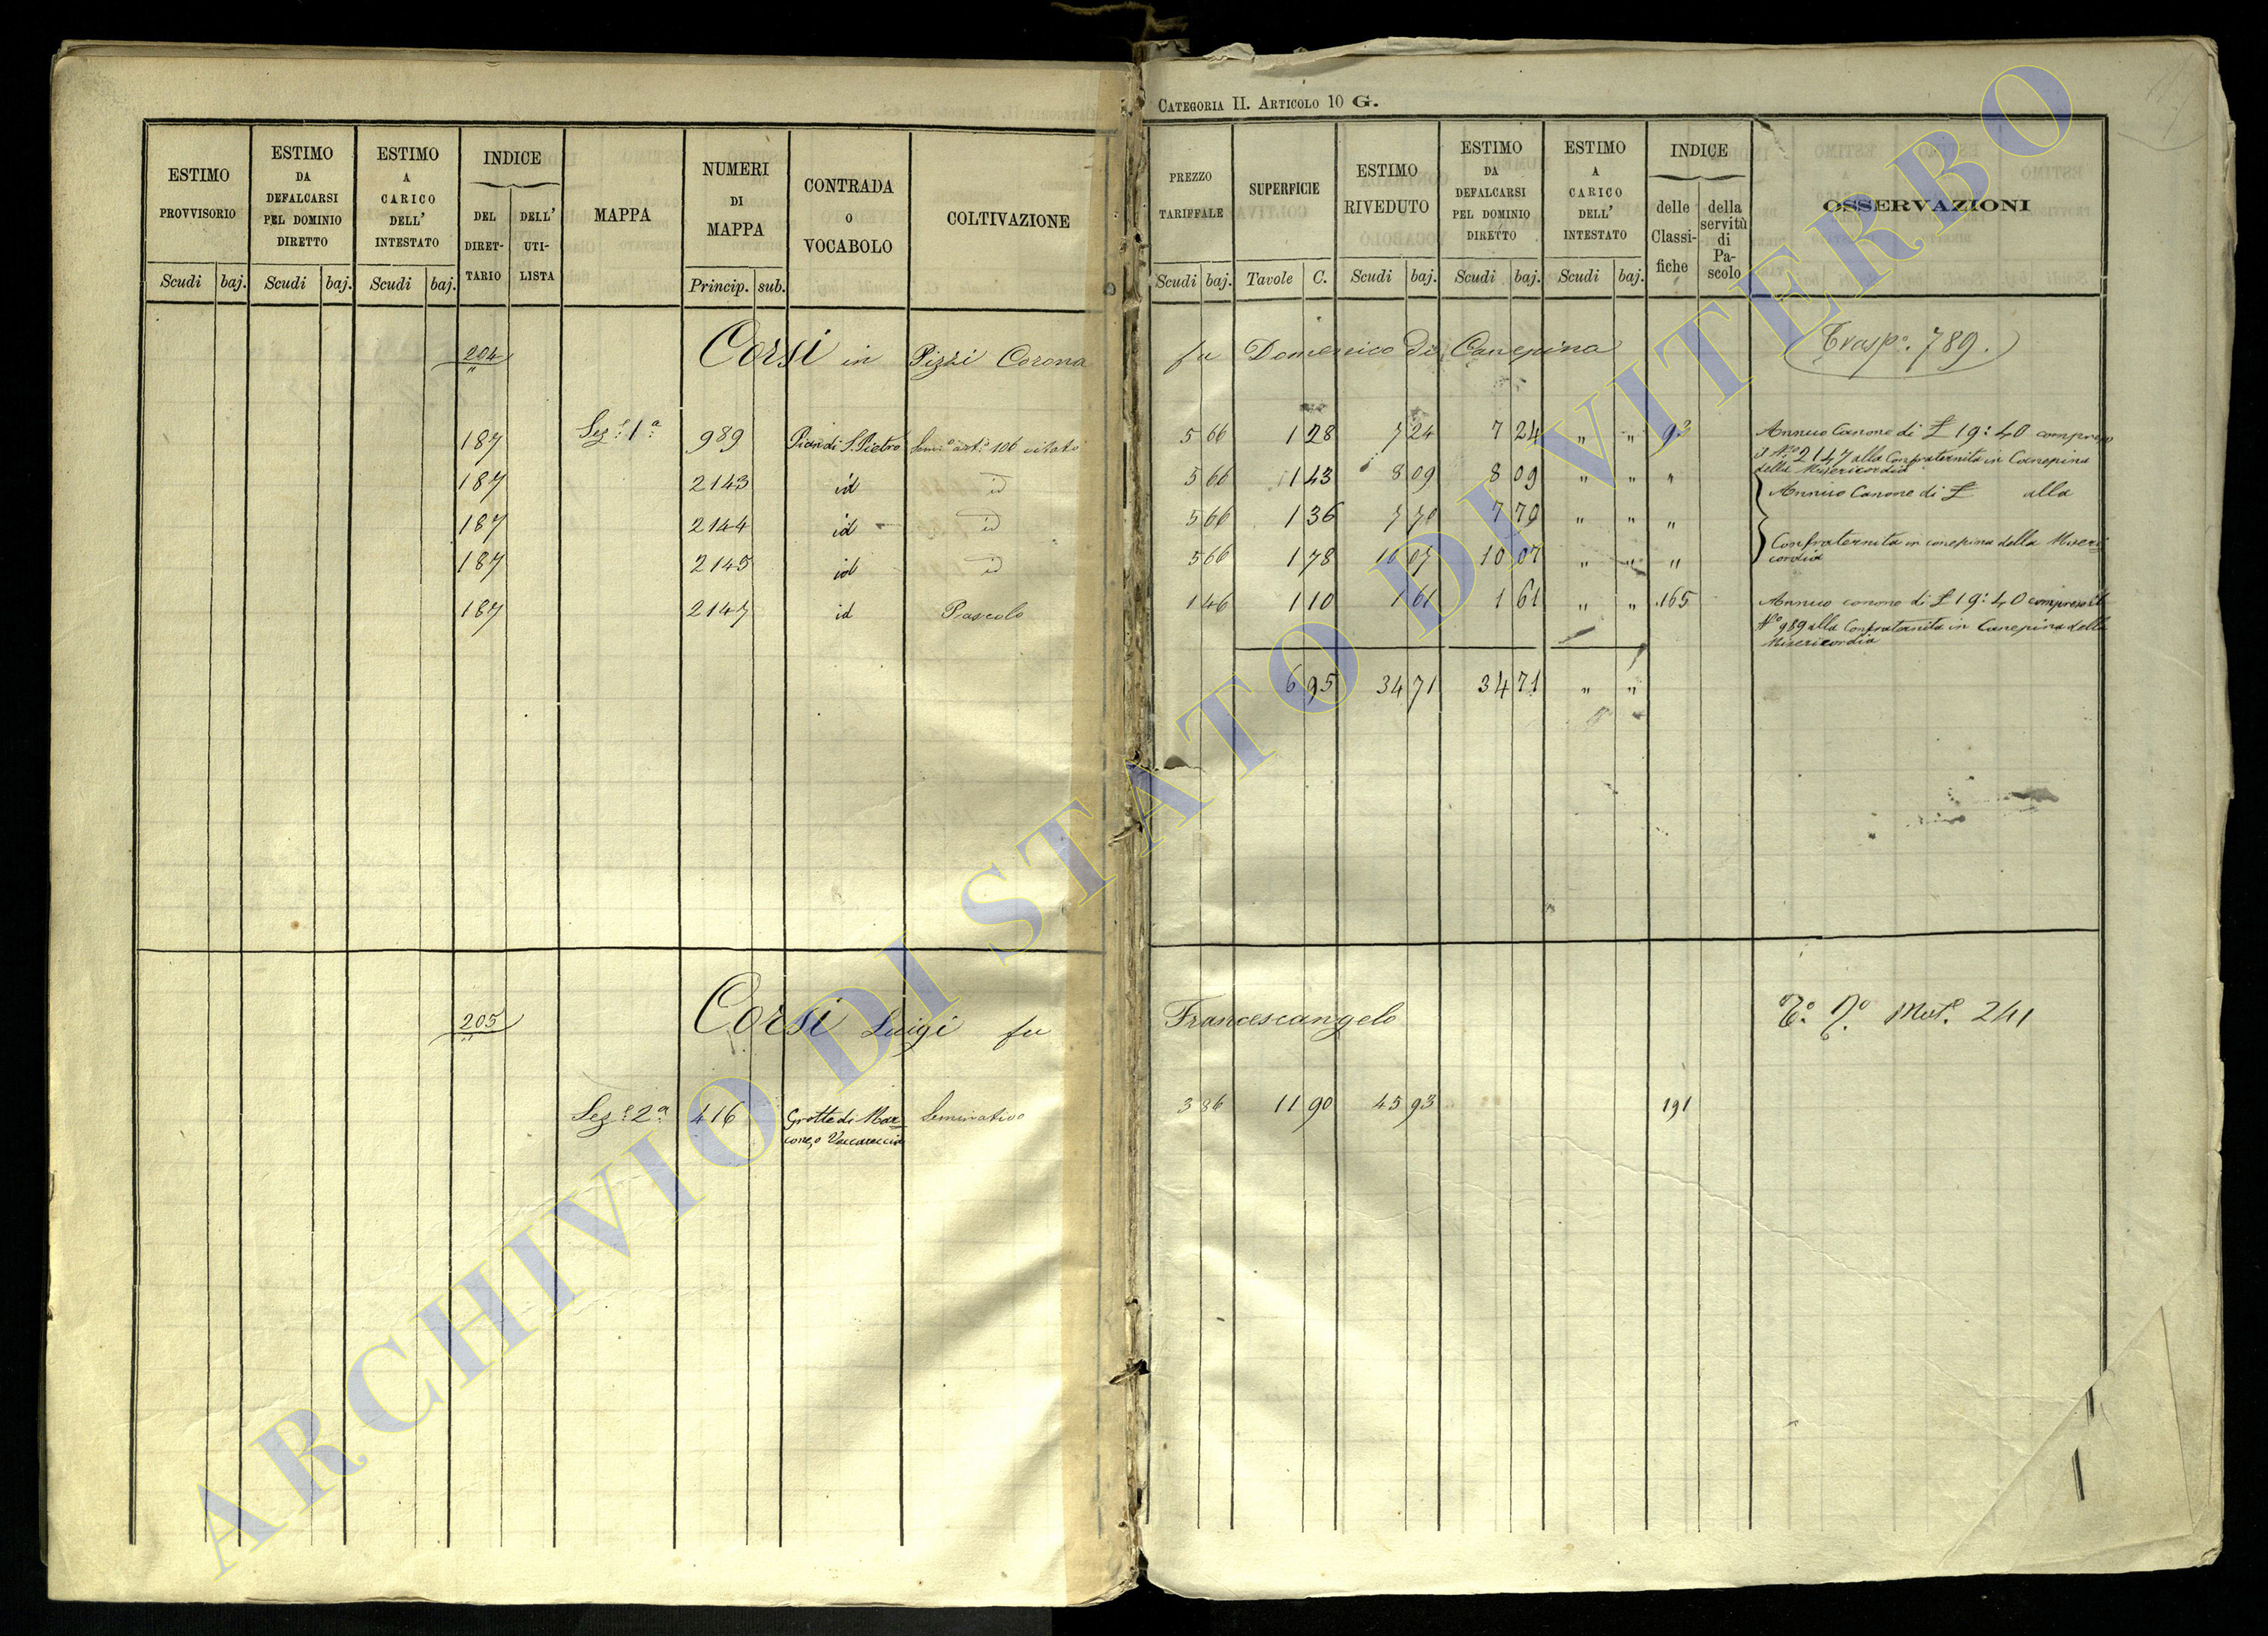 CATEGORIA II. ARTICOLO 10 G.
ESTIMO PROVVISORIO
ESTIMO DA DEFALCARSI PEL DOMINIO DIRETTO
ESTIMO A CARICO DELL' INTESTATO
INDICE
DEL DIRET-TARIO
DELL' UTI-LISTA
MAPPA
NUMERI DI MAPPA
CONTRADA O VOCABOLO
COLTIVAZIONE
Scudi baj. Scudi baj. Scudi baj. Princip. sub.
PREZZO TARIFFALE
SUPERFICIE
ESTIMO RIVEDUTO
ESTIMO DA DEFALCARSI PEL DOMINIO DIRETTO
ESTIMO A CARICO DELL' INTESTATO
INDICE
delle Classi-fiche
della servitù di Pa-scolo
OSSERVAZIONI
Scudi baj. Tavole C. Scudi baj. Scudi baj. Scudi baj.
204 Corsi in Pizzi Corona fu Domenico di Canepina Trasp.o 789.
187 Sez.e 1a 989 Pian di S. Pietro 106 vitato 5 66 1 28 7 24 7 24 " " 93
Annuo Canone di £ 19:40 compreso
il No 2147 alla Confraternita in Canepina
della Misericordia
187 2143 id id 5 66 1 43 8 09 8 09 " " "
Annuo Canone di £ alla
187 2144 id id 5 66 1 36 7 70 7 70 " " "
Confraternita in Canepina della Miseri
cordia
187 2145 id id 5 66 1 78 10 07 10 07 " " "
187 2147 id Pascolo 1 46 1 10 1 61 1 61 " " 165
Annuo canone di £ 19:40 compreso il
No 989 alla Confraternita in Canepina della
Misericordia
6 95 34 71 34 71 " "
205 Corsi Luigi fu Francescangelo 241
Sez.e 2a 416 Grotte di Mar
cone, o Vaccareccia Seminativo 3 86 11 90 45 93 191
ARCHIVIO DI STATO DI VITERBO